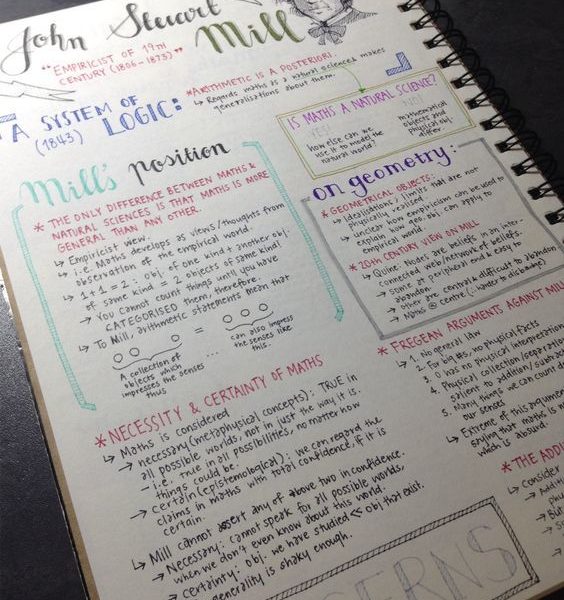 John Stewart
Mill
"EMPIRICIST OF 19TH
CENTURY (1806-1873)"
"A SYSTEM OF
(1843) LOGIC:
*ARITHMETIC IS A POSTERIORI.
↳ Regards maths as a natural science & makes
generalisations about them.
IS MATHS A NATURAL SCIENCE?
YES!
How else can we
use it to model the
natural world?
NO!
mathematical
objects and
physical obj.
differ
Mill's position
* THE ONLY DIFFERENCE BETWEEN MATHS &
NATURAL SCIENCES IS THAT MATHS IS MORE
GENERAL THAN ANY OTHER.
↳ Empiricist view.
→ i.e. Maths develop as views/thoughts from
observation of the empirical world.
↳ 1+1 = 2 : obj. of one kind + another obj.
of same kind = 2 objects of same kind.
→ You cannot count things until you have
CATEGORISED them, therefore :
↳ To Mill, arithmetic statements mean that
=
A collection of
objects which
impresses the senses
thus
...
can also impress
the senses like
this.
on geometry:
* GEOMETRICAL OBJECTS:
↳ Idealisations / limits that are not
physically realised.
→ unclear how empiricism can be used to
explain how geo. obj. can apply to
empirical world.
* 20TH CENTURY VIEW ON MILL
↳ Quine: Nodes are beliefs in an inter-
connected web/network of beliefs.
→ some at peripheral end & easy to
abandon
→ other are central & difficult to abandon
→ Maths @ centre (∴ harder to disbar)
* NECESSITY & CERTAINTY OF MATHS
↳ Maths is considered
→ necessary (metaphysical concepts): TRUE in
all possible worlds, not in just the way it is.
– i.e. TRUE in all possibilities, no matter how
things could be.
→ certain (epistemological) : we can regard the
claims in maths with total confidence, if it is
certain.
↳ Mill cannot assert any of above two in confidence.
→ Necessary: cannot speak for all possible worlds,
when we don't even know about this world.
→ certainty: obj. we have studied << obj that exist.
generality is shaky enough.
* FREGEAN ARGUMENTS AGAINST MILL
↳ 1. No general law
2. For big #s, no physical facts
3. 0 has no physical interpretation
4. Physical collection/separation
salient to addition/subtrac
5. Many things we can count do
our senses
↳ Extreme of this argument
saying that maths is no
which is absurd.
* THE ADDI
↳ Consider
→ Additi
phy
→ But
→ So